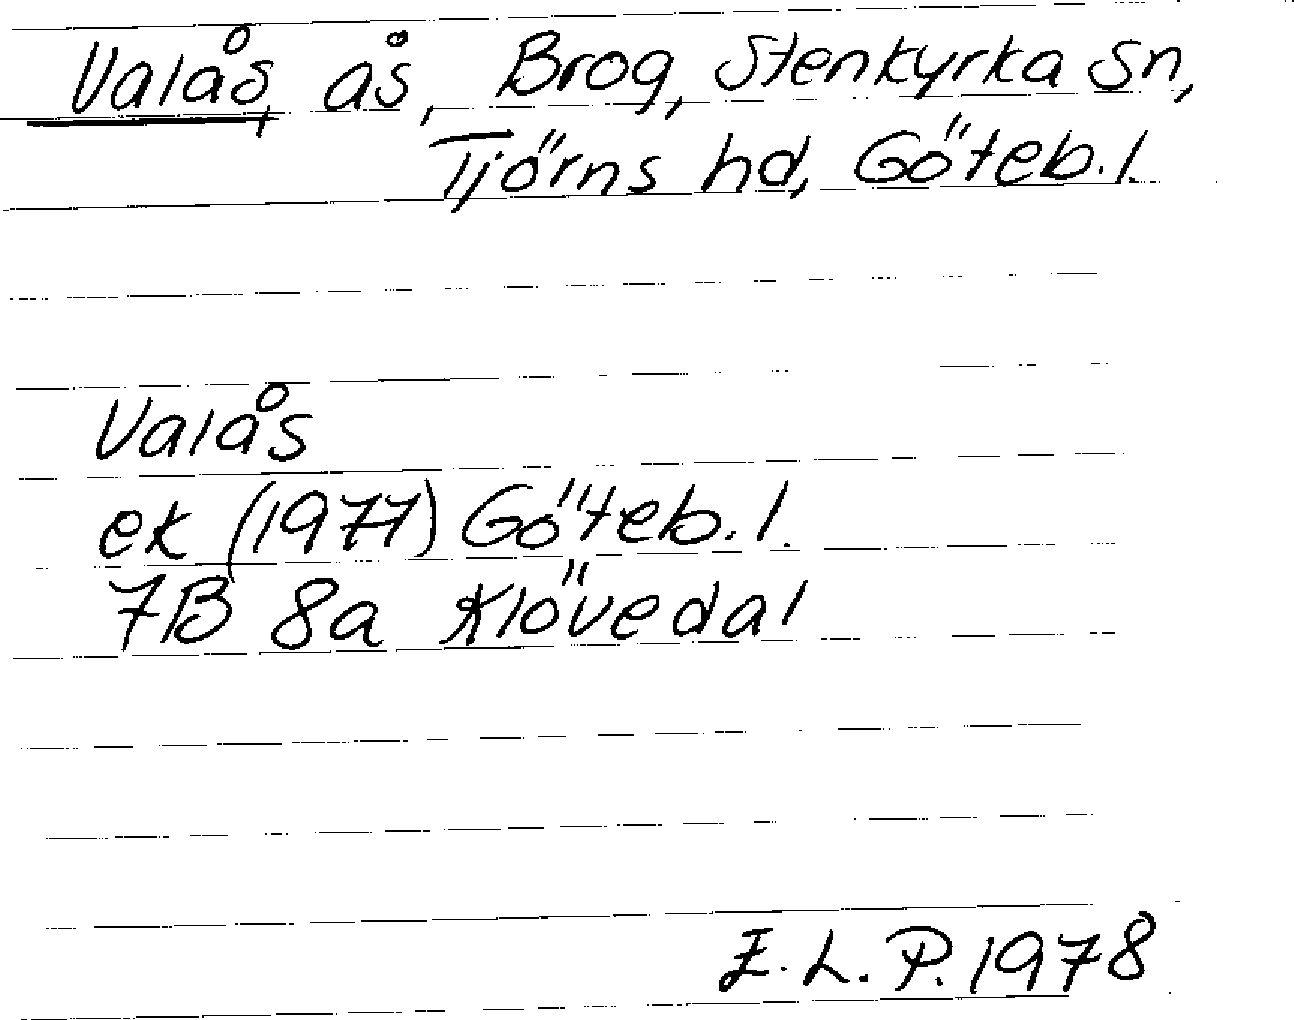 Valås, ås, Brog, Stenkyrka sn,
Tjörns hd, Göteb. l.
Valås
ek (1977) Göteb. l.
7B 8a Klövedal
E. L. P. 1978